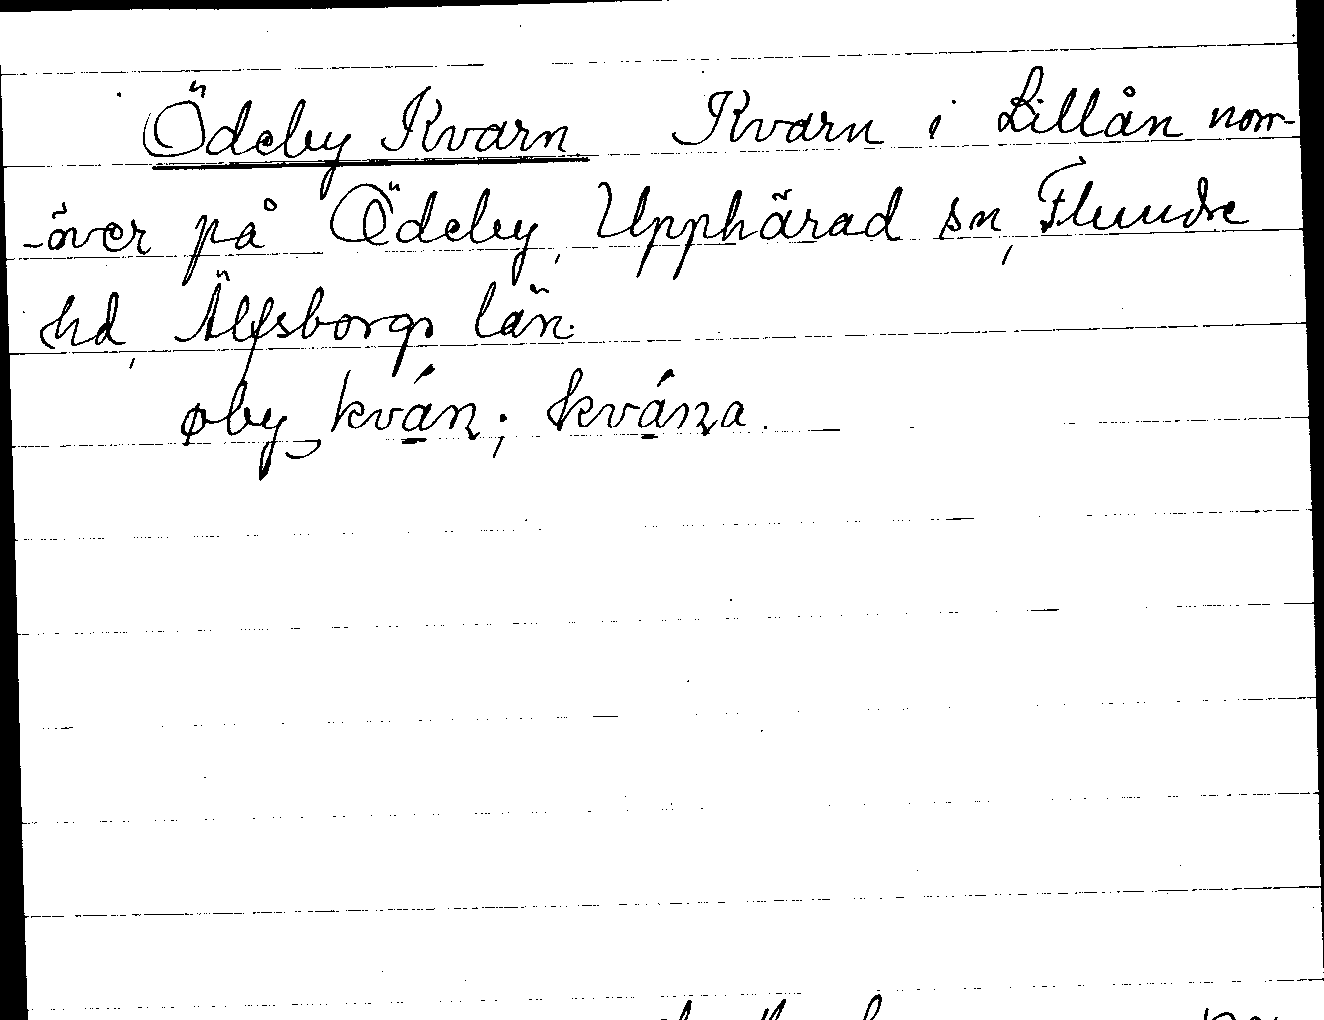 Ödeby Kvarn. Kvarn i Lillån norr-
-över på Ödeby, Upphärad sn, Flundre
hd, Älfsborgs län.
øby kván; kvána.